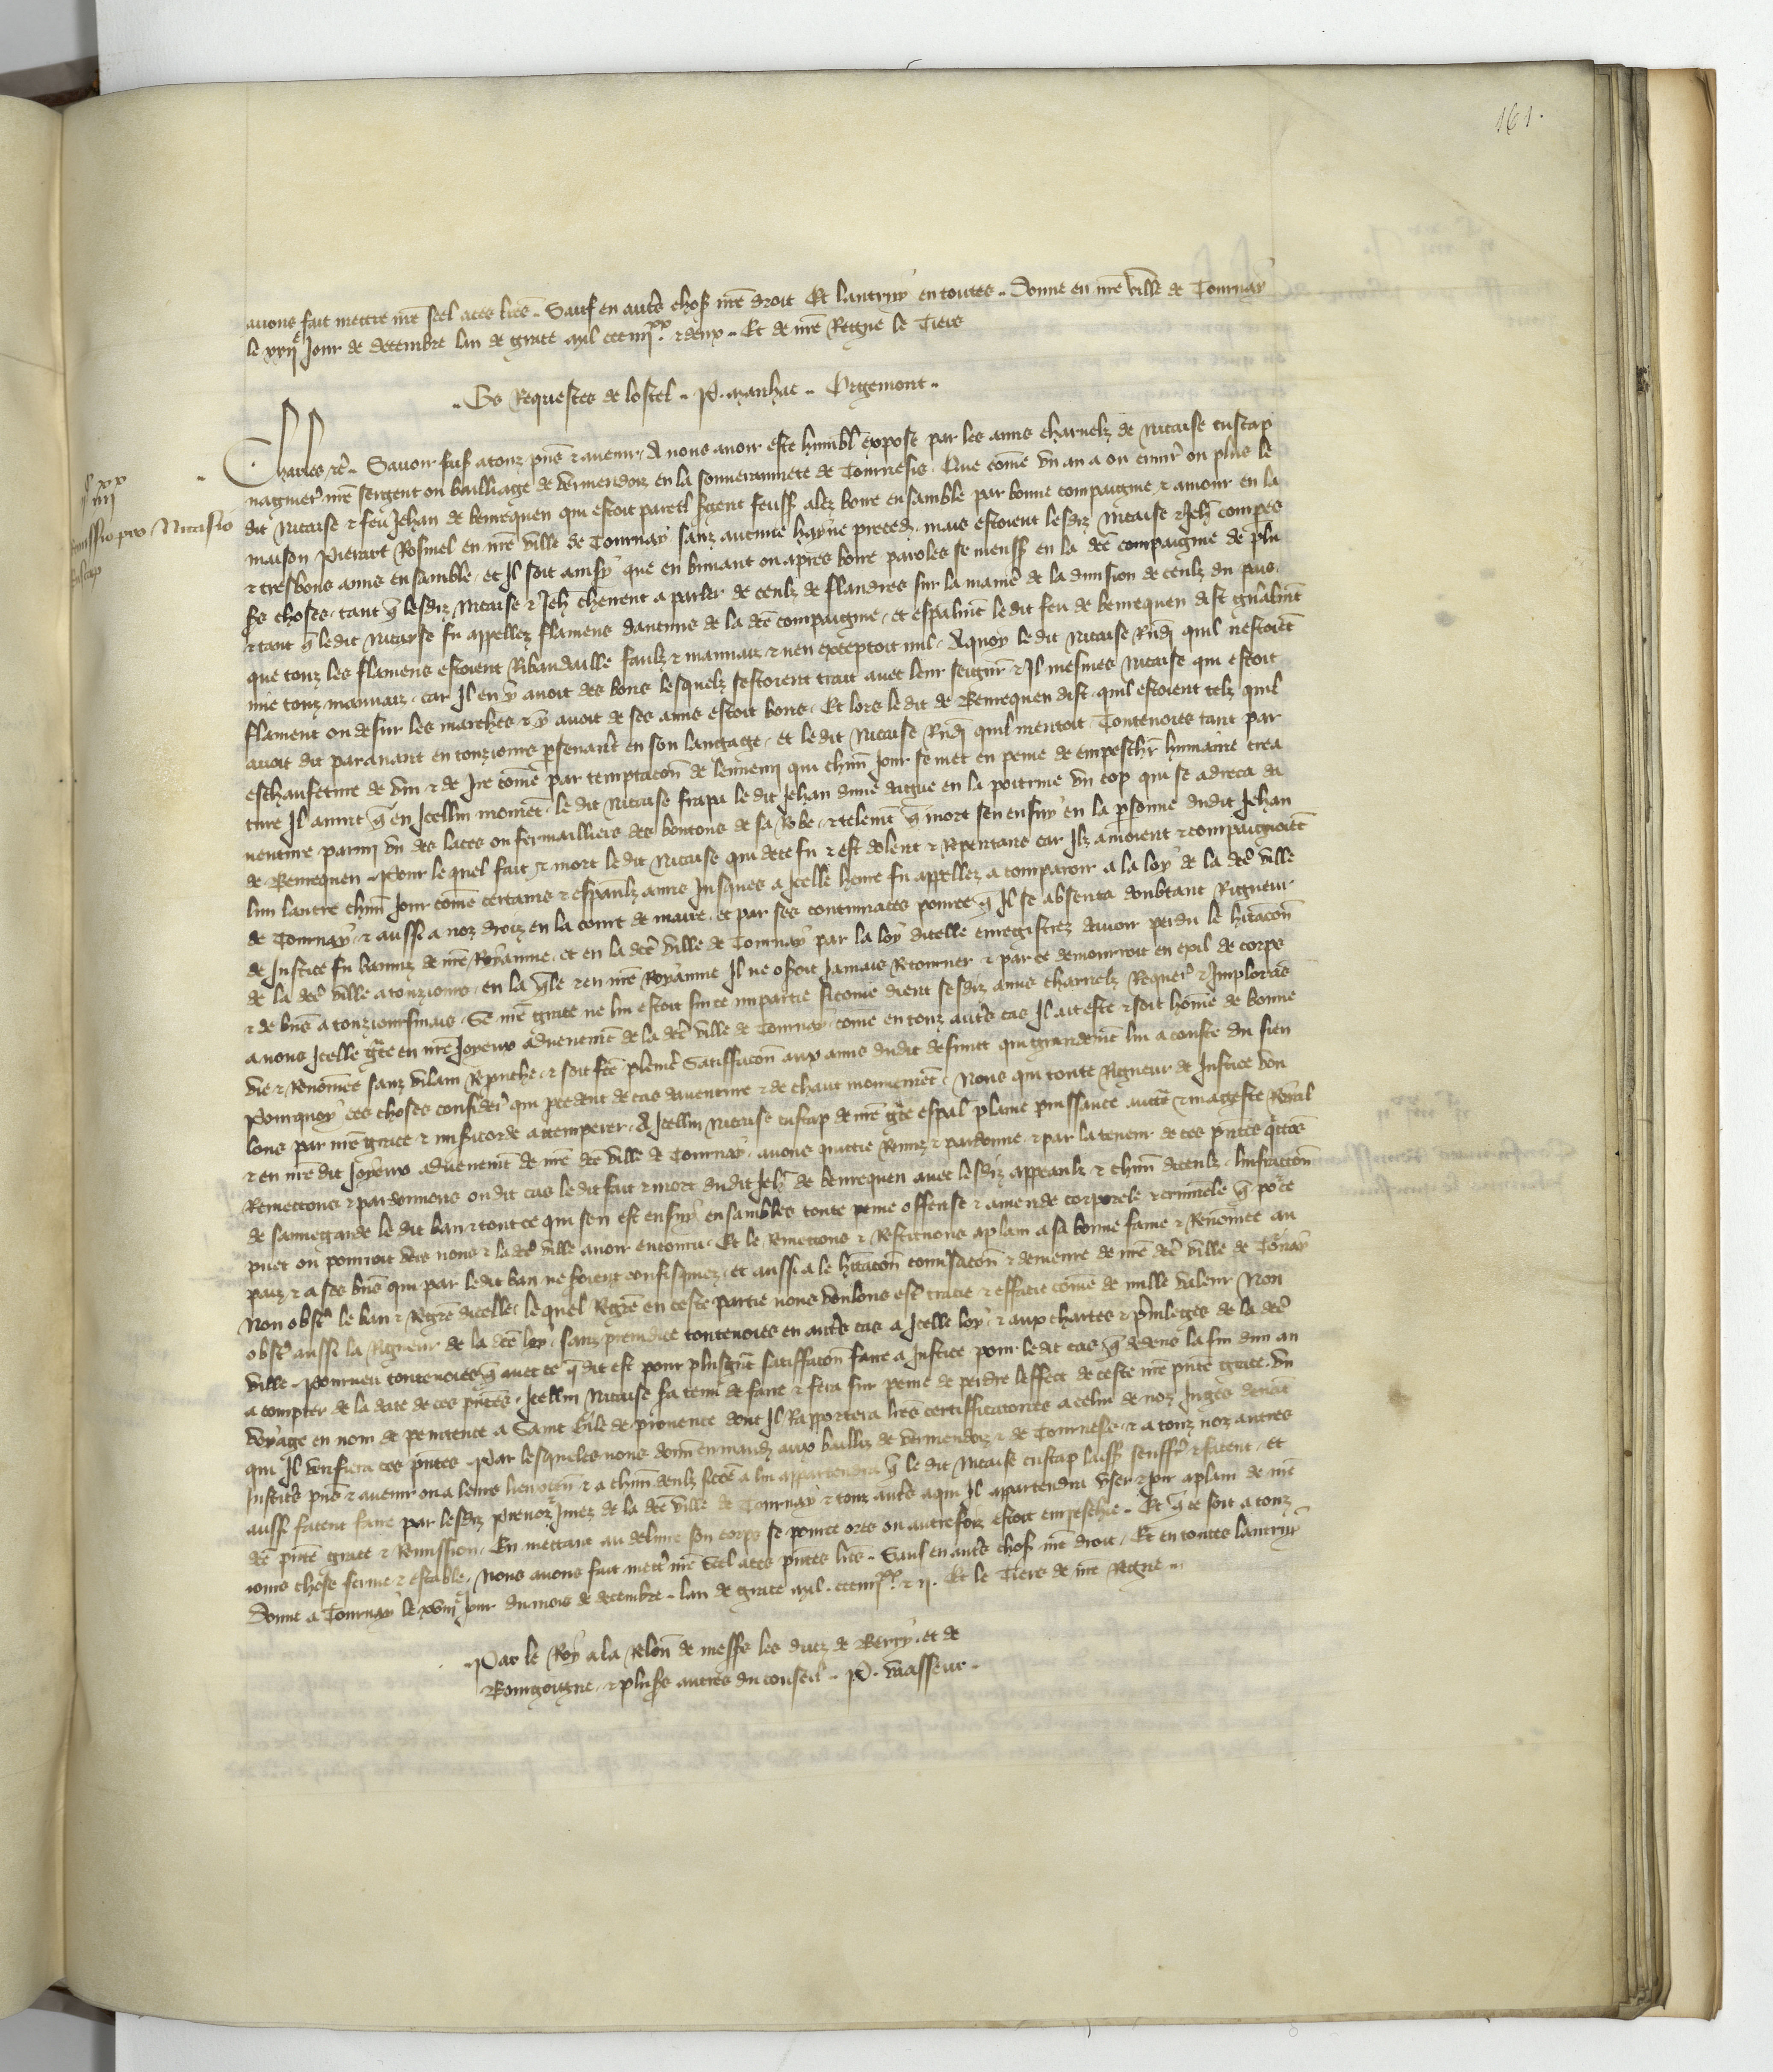 161.
avons fait mettre nre seel a ces lres. Sauf en autres choses nre droit Et lautruy en toutes. Donne en nre ville de Tournay
le xxije Jour de decembre lan de grace mil ccc iiijxx et deux. Et de nre Regne le Tiers
Es Requestes de lostel. P. Manhac. Orgemont.
iiijxx
Remissio pro Nicasio
Cuscap
Charles etc. Savoir fais a touz pns et avenir, A nous avoir este humblemt expose par les amis charnelz de Nicaise cuscap
naguieres nre sergent ou bailliage de vermendois en la souverainnete de Tournesis. Que come un an a ou environ ou plus le
dit Nicaise et feu Jehan de bemequen qui estoit pareil sergent feussent alez boire ensamble par bonne compaignie et amour en la
maison Pierart Rosmel en nre ville de Tournay sanz aucune hayne preced. mais estoient lesdiz Nicaise et Jeh comperes
et tresbons amis ensamble, et Il soit ainsy que en buvant ou apres boire paroles se meussent en la dce compaignie de plu
ses choses, tant que lesdiz Nicaise et Jeh cheirent a parler de ceulz de flandres sur la maniere de la division de ceulz du pais.
et tant que ledit Nicayse fu appellez flamens daucuns de la dce compaignie, et espalmt le dit feu de bemequen dist gnalmt
que touz les flamens estoient Ribaudaille faulz et mauvaiz et nen exceptoit nul. A quoy le dit Nicaise Rndi quil nestoiet
mie touz mauvaiz, car Il en y avoit des bons lesquelz sestoient trait avec leur seignr et Il mesmes Nicaise qui estoit
flament ou desur les marches et y avoit de ses amis estoit bons. Et lors le dit de Bemequen dist, quil estoient telz quil
avoit dit paravant en touziours perseverant en son langage, et le dit Nicaise Rndi quil mentoit Toutevoies tant par
eschaufeture de vin et de Ire come par temptacon de lennemi qui chun Jour se met en peine de empescher humaine crea
ture Il avint que en Icellui momet, le dit Nicaise frapa le dit Jehan dune dague en la poitrine un cop qui se adreca da
venture parmi un des laces ou fermailliers des boutons de sa Robe, et telemt que mort sen ensuy en la personne dudit Jehan
de Bemequen. Pour le quel fait et mort le dit Nicaise qui de ce fu et est dolent et Repentans car Ilz amoient et compaignoiet
lun lautre chun Jour come certains et espaulz amis Jusques a Icelle heure fu appellez a comparoir a la loy de la dce ville
de Tournay, et aussi a noz droiz en la court de maire, et par ses contumaces pource que Il se absenta doubtant Rigueur
de Justice fu banniz de nre Royaume, et en la dce ville de Tournay par la loy dicelle enregistrez davoir perdu le hitacon
de la dce ville a touziours, en la quele et en nre Royaume Il ne oseroit Jamais Retourner et par ce demourroit en exil de corps
et de bns a touziourmais, Se nre grace ne lui estoit sur ce impartie sicome dient sesdiz amis charnelz Requer et Implorans
a nous Icelle grce en nre Joyeux advenemt de la dce ville de Tournay, come en touz autres cas Il ait este et soit home de bonne
vie et Renomee sanz vilain Reproche, et soit fce pleniere Satiffacon aux amis dudit defunct qui grandemt lui a couste du sien
Pourquoy ces choses consideres qui procedent de cas daventure et de chaut mouvemet. Nous qui toute Rigueur de Justice vou
lons par nre grace et misericorde attemperer. A Icellui Nicaise cuscap de nre grce espal plaine puissance auctte et mageste Royal
et en nre dit Joyeux advenemt de nre dce ville de Tournay, avons quittie Remiz et pardonne, et par la teneur de ces pntes quittos
Remettons et pardonnons oudit cas le dit fait et mort dudit Jeh de bemequen avec lesdiz appeaulz et chun diceulz, linfraccon
de sauvegarde le dit ban et tout ce qui sen est ensuy ensambles toute peine offense et amende corporele et criminele que por ce
puet ou pourroit vers nous et la dce ville avoir encouru. Et le Remettons et Restituons a plain a sa bonne fame et Renomee au
paiz et a ses bns qui par ledit ban ne seroient confisquiez, et aussi a le hitacon convsacon et demeure de nre dce ville de Tornay
Non obst le ban et Regre dicelle, lequel Regre en ceste partie nous voulons estre tracie et effacie come de nulle valeur Non
obst aussi la Rigueur de la dce loy, sanz preiudice toutevoies en autres cas a Icelle loy, et aux chartes et privileges de la dce
ville. Pourveu toutevoies que avec ce q dit est pour plusgrant satiffacon faire a Justice pour ledit cas que dedens la fin dun an
a compter de la date de ces pntes, Icellui Nicaise sa tenu de faire et fera sur peine de perdre leffect de ceste nre pnte grace, un
voyage en nom de penitence a Saint Gile de provence dont Il Rapportera lres certifficatoires a celui de noz Juges devat
qui Il verifiera ces pntes. Par lesqueles nous donn en mand aux bailliz de vermendoiz et de Tournesis et a touz noz autres
Justices pns et avenir ou a leurs lieuxten et a chun deulz sicome a lui appartendra que le dit Nicaise cuscap laissent seuffr et facent, et
aussi facent faire par lesdiz prevoz Jurez de la dce ville de Tournay et touz autres a qui Il appartendra user et joir a plain de nre
dce pnte grace et Remission, En mettant au delivre son corps se pource ores ou autrefoiz estoit empeschie. Et que ce soit a touz
iours chose ferme et estable, Nous avons fait mettre nre seel a ces pntes lres. Sauf en autres choses nre droit. Et en toutes lautruy
Donne a Tournay le xviije jour du mois de decembre. lan de grace mil. ccc iiijxx et ij. Et le Tiers de nre Regne.
Par le Roy a la relon de messs les ducz de Berry. et de
Bourgoigne. et pluses autres du conseil. P. vasseur.